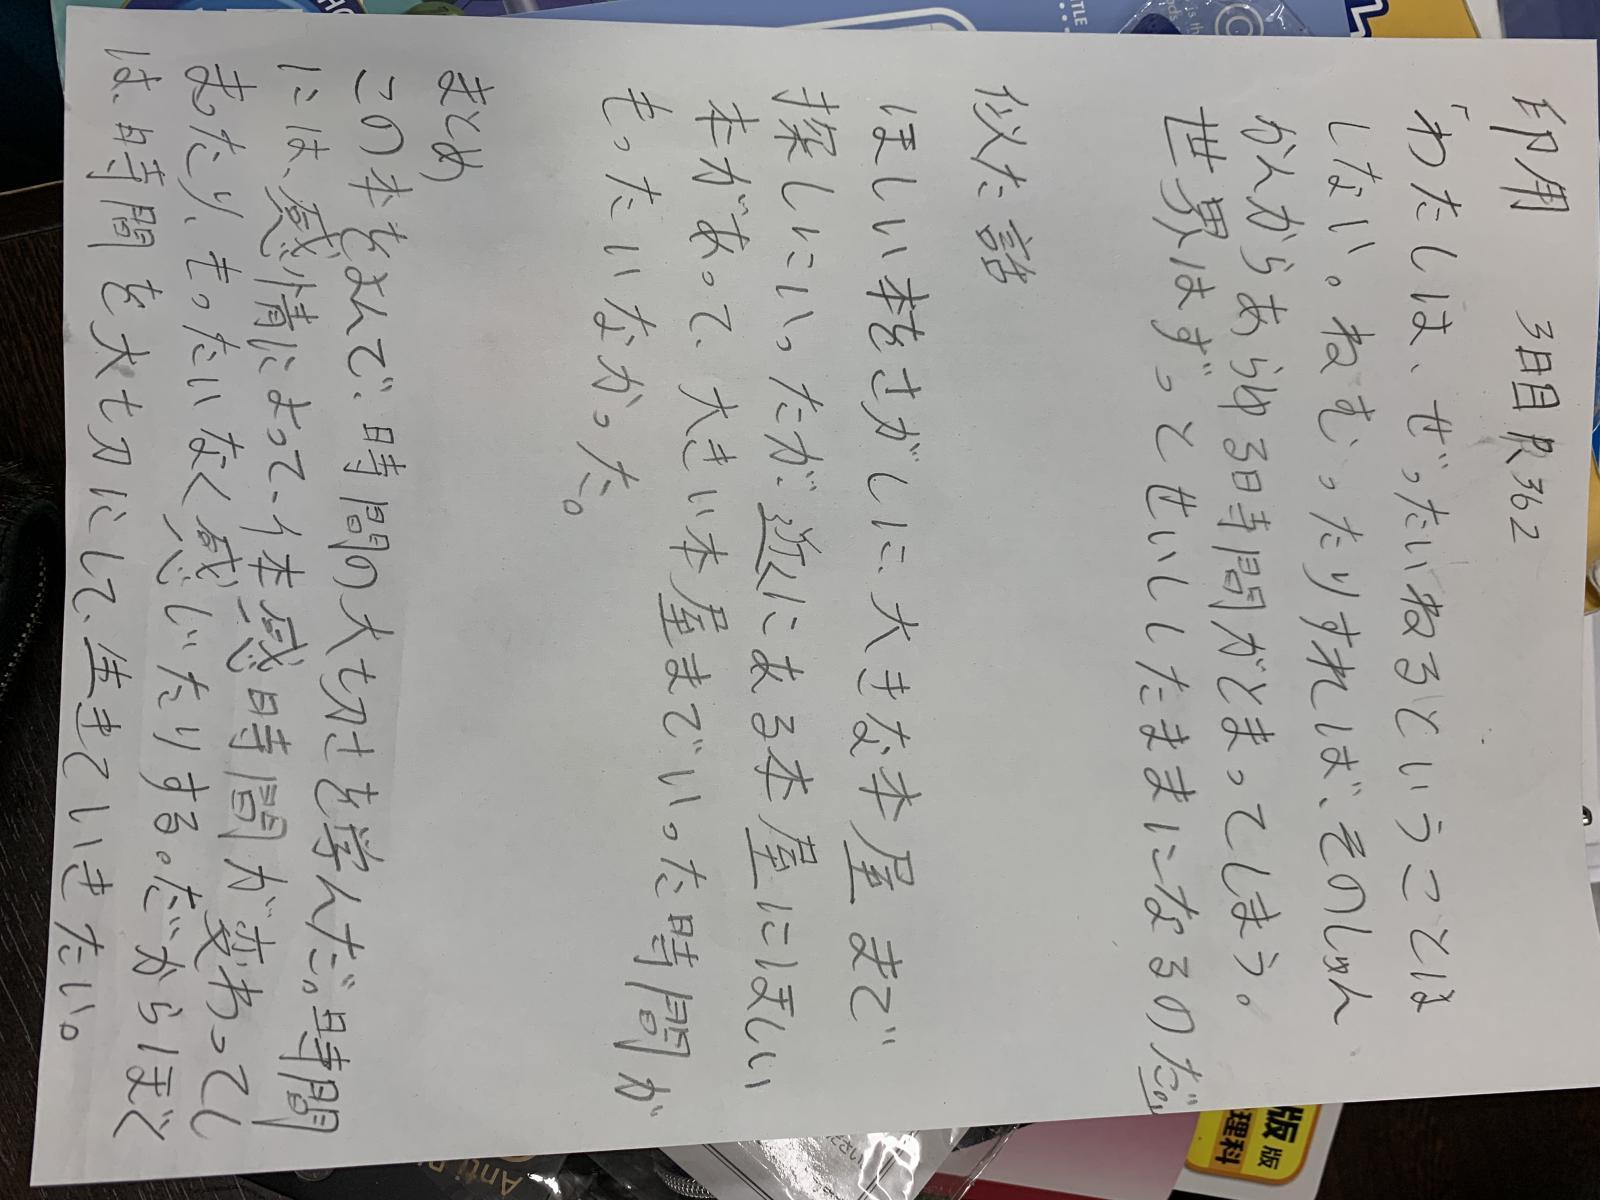 印用 3日目 P.362
「わたしは、ぜったいねるということは
しない。ねむったりすれば、そのしゅん
かんからあらゆる時間がとまってしまう。
世界はずっとせいししたままになるのだ。」
似た話
ほしい本をさがしに、大きな本屋まで
探しにいったが、近くにある本屋にほしい
本があって、大きい本屋までいった時間が
もったいなかった。
まとめ
この本をよんで、時間の大切さを学んだ。時間
には、感情によって、体感時間が変わってし
まったり、もったいなく感じたりする。だからぼく
は、時間を大切にして、生きていきたい。
版 版
理科
Anti
TLE